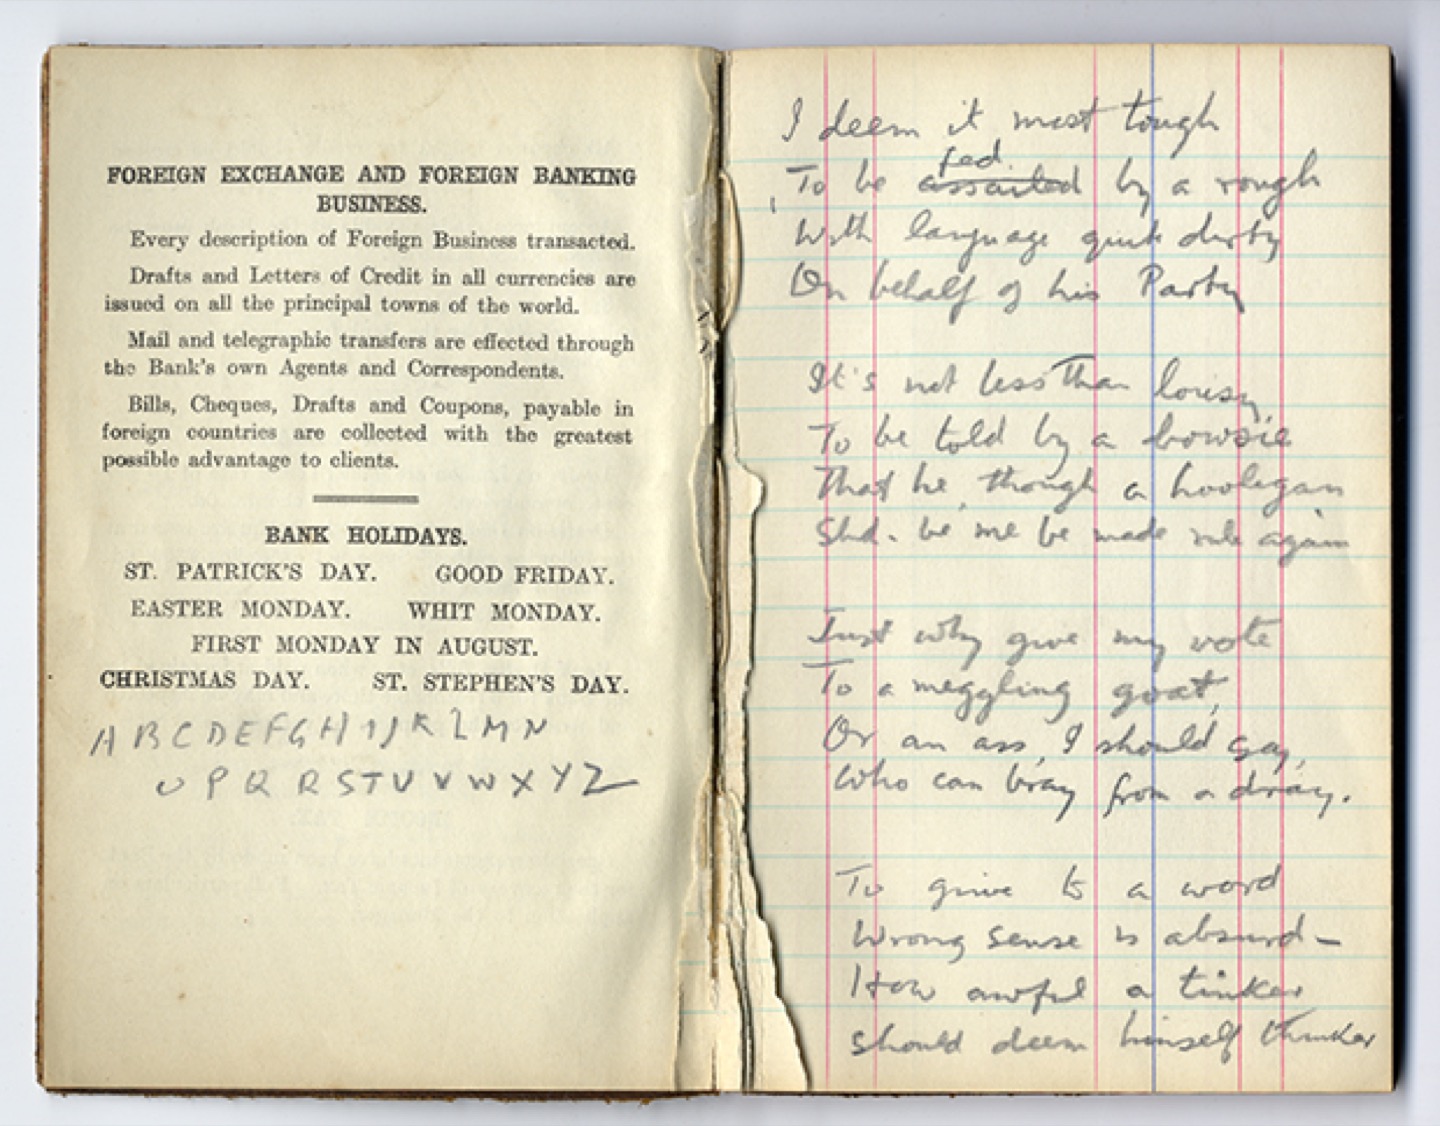 FOREIGN EXCHANGE AND FOREIGN BANKING
BUSINESS.
Every description of Foreign Business transacted.
Drafts and Letters of Credit in all currencies are
issued on all the principal towns of the world.
Mail and telegraphic transfers are effected through
the Bank's own Agents and Correspondents.
Bills, Cheques, Drafts and Coupons, payable in
foreign countries are collected with the greatest
possible advantage to clients.
BANK HOLIDAYS.
ST. PATRICK'S DAY. GOOD FRIDAY.
EASTER MONDAY. WHIT MONDAY.
FIRST MONDAY IN AUGUST.
CHRISTMAS DAY. ST. STEPHEN'S DAY.
A B C D E F G H I J K L M N
O P Q R S T U V W X Y Z
I deem it most tough
fed
To be assailed by a rough
With language quite dirty
On behalf of his Party
It's not less than lousy,
To be told by a bowsie
That he, though a hooligan
Shd. be me be made rule again
Just why give my vote
To a meggling goat,
Or an ass, I should say,
Who can bray from a dray.
To give to a word
Wrong sense is absurd –
How awful a tinker
should deem himself thinker